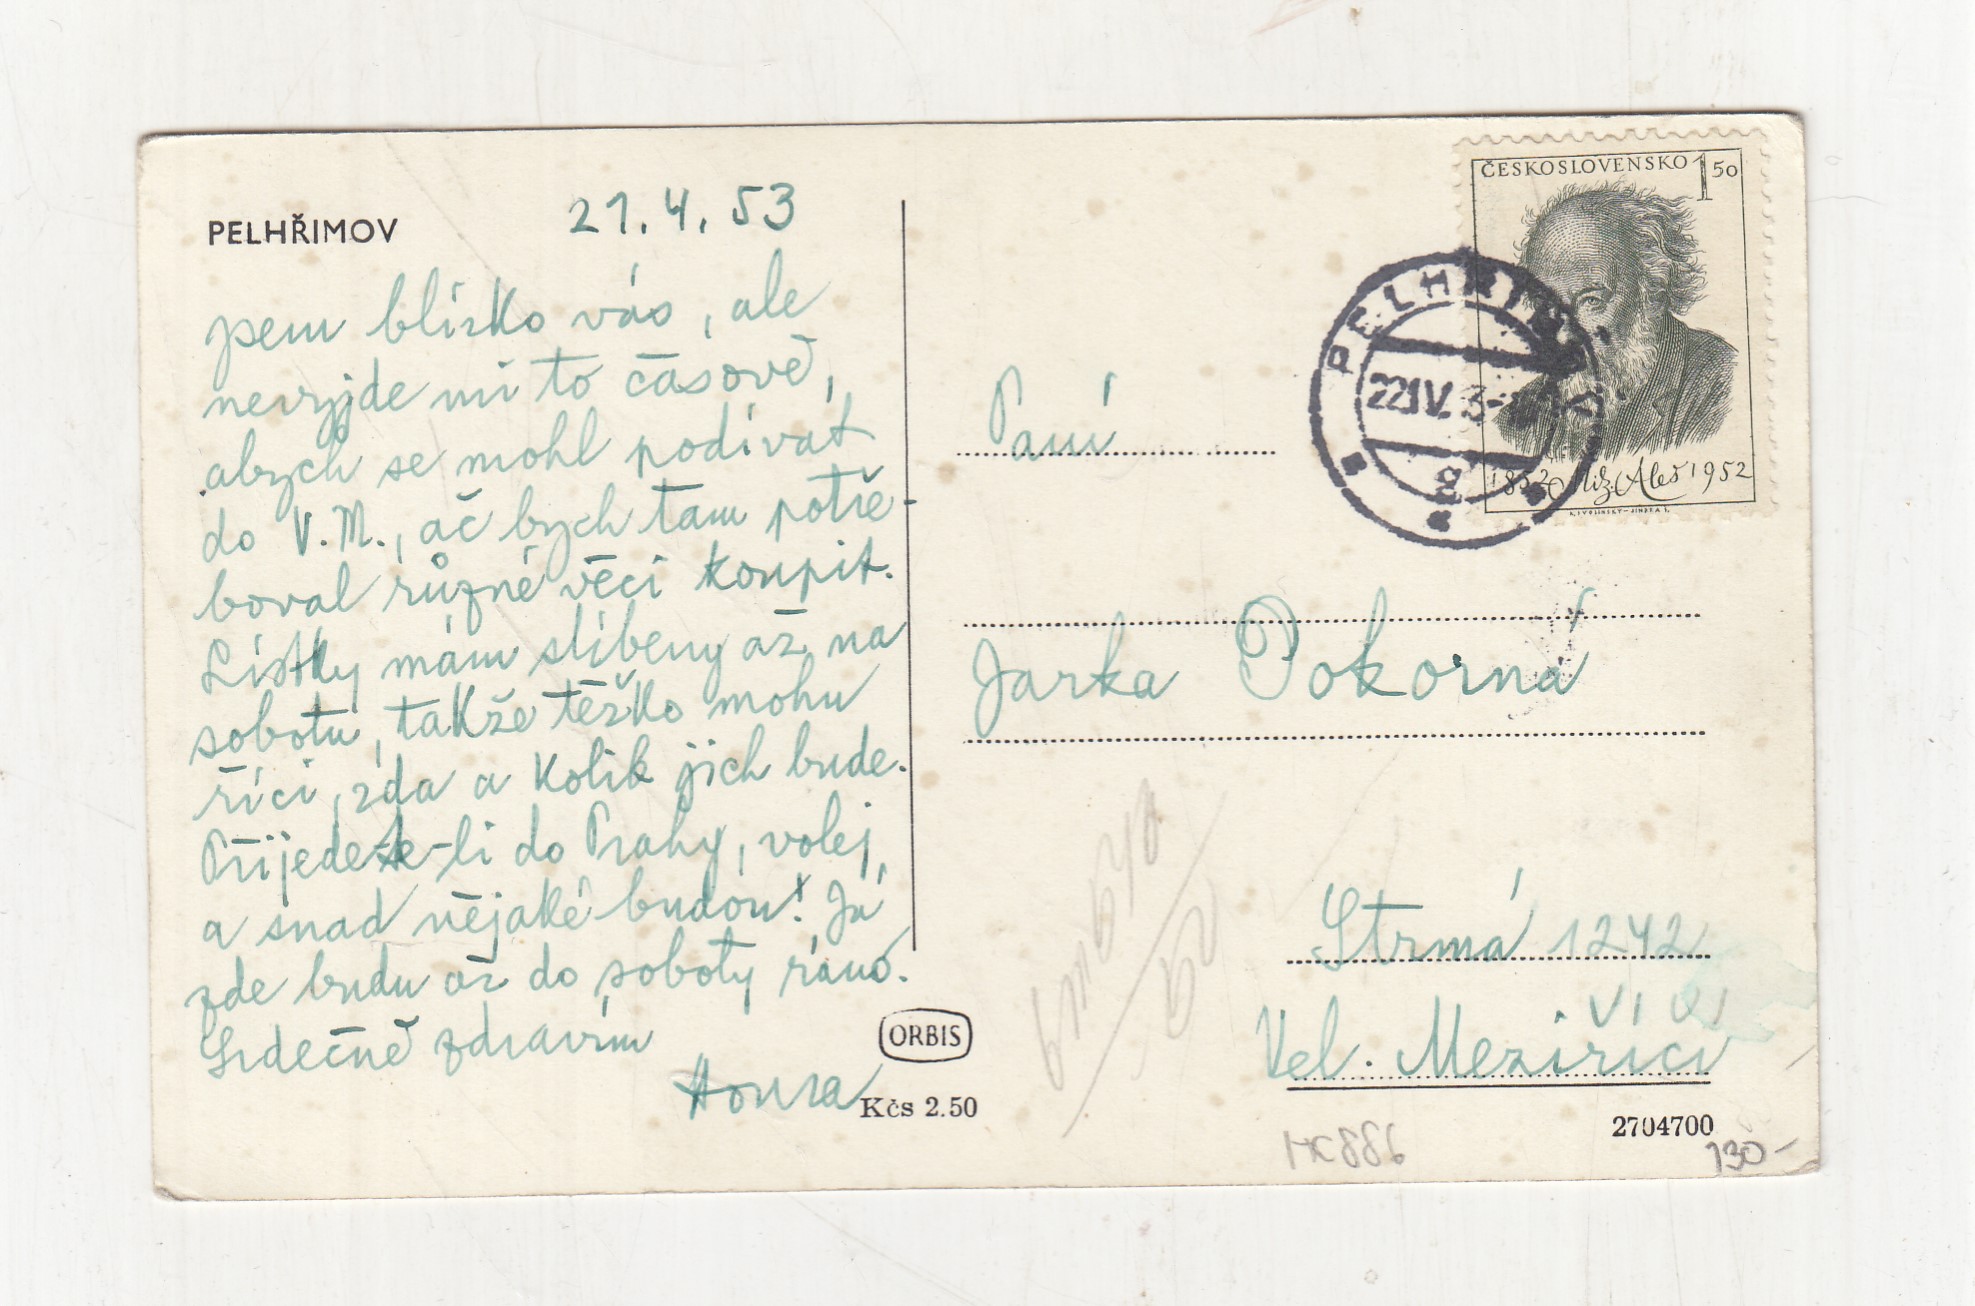 PELHŘIMOV
21.4.53
jsem blízko vás, ale
nevyjde mi to časově,
abych se mohl podívat
do V.M., ač bych tam potře-
boval různé věci koupit.
Lístky mám slíbeny až na
sobotu, takže těžko mohu
říci, zda a kolik jich bude.
Přijedete-li do Prahy, volej,
a snad nějaké budou! Já
zde budu až do soboty ráno.
Srdečně zdravím
Honza
ORBIS
Kčs 2.50
ČESKOSLOVENSKO 1 50
1852 Mik. Aleš 1952
PELHŘIMOV
22.IV.53
Paní
Jarka Pokorná
Strmá 1242
Vel. Meziříčí
VI
2704700
130-